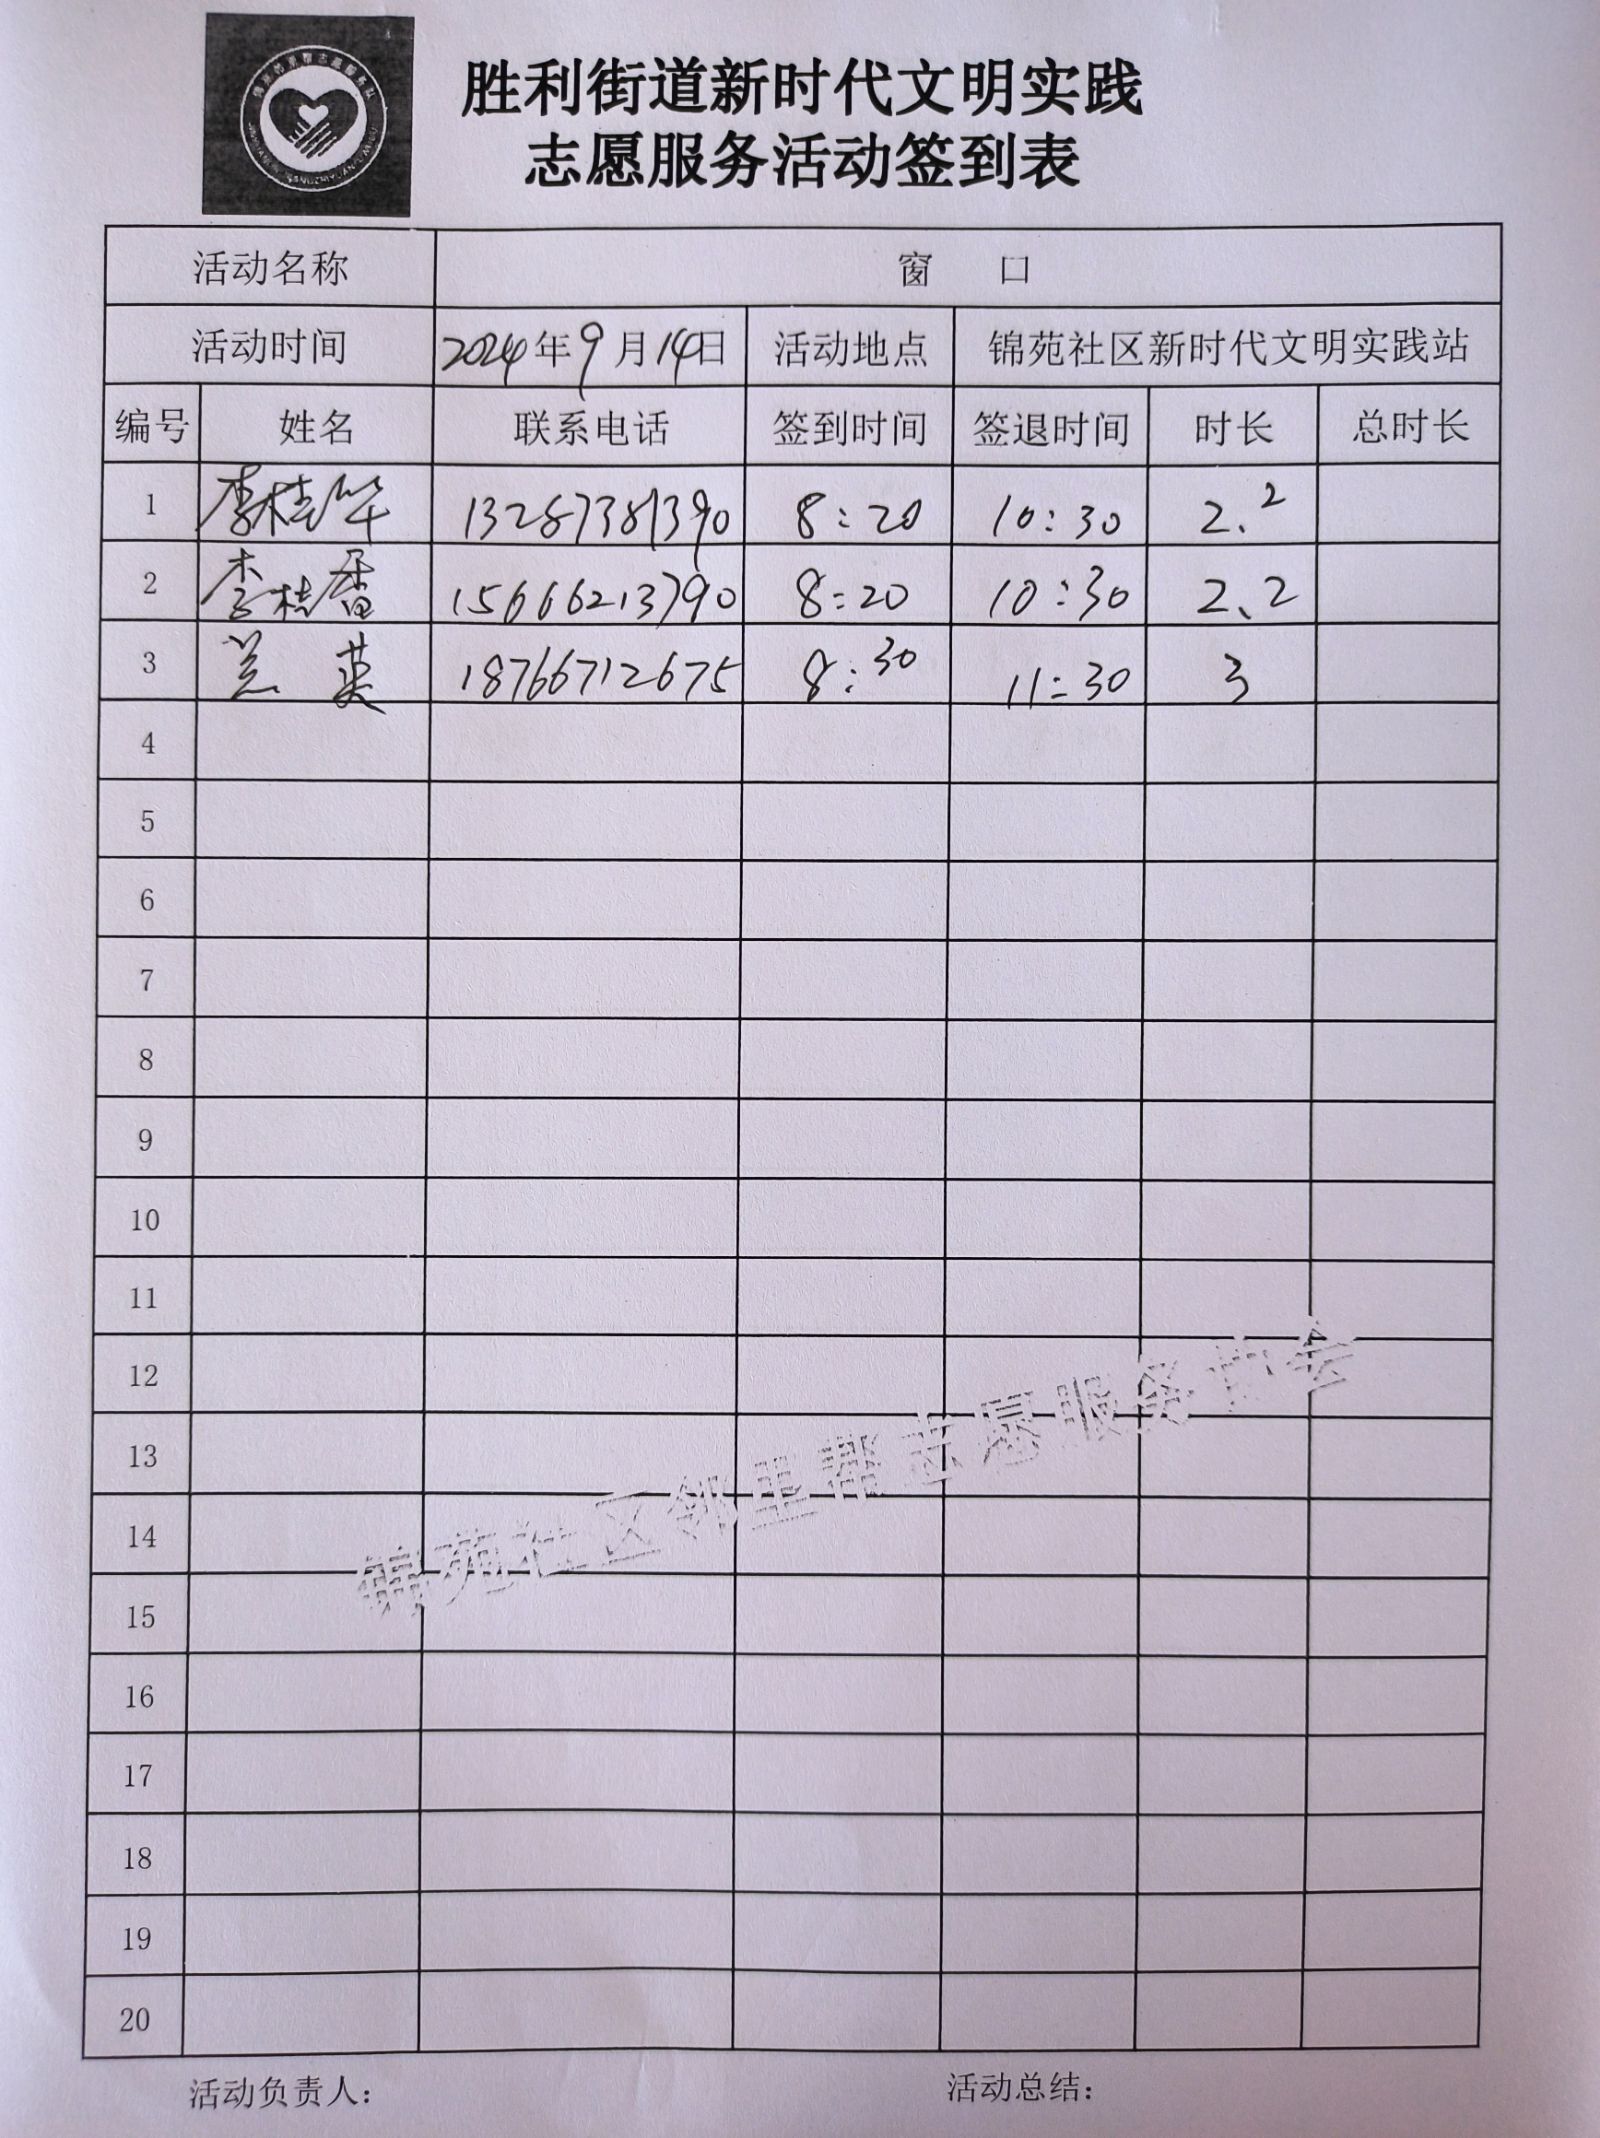 胜利街道新时代文明实践
志愿服务活动签到表
活动名称 窗 口
活动时间 2024年9月14日 活动地点 锦苑社区新时代文明实践站
编号 姓名 联系电话 签到时间 签退时间 时长 总时长
1 李桂华 13287381390 8:20 10:30 2.2
2 李桂香 15666213790 8:20 10:30 2.2
3 兰英 18766712675 8:30 11:30 3
4
5
6
7
8
9
10
11
12
13
14
15
16
17
18
19
20
锦苑社区邻里帮志愿服务协会
活动负责人: 活动总结: